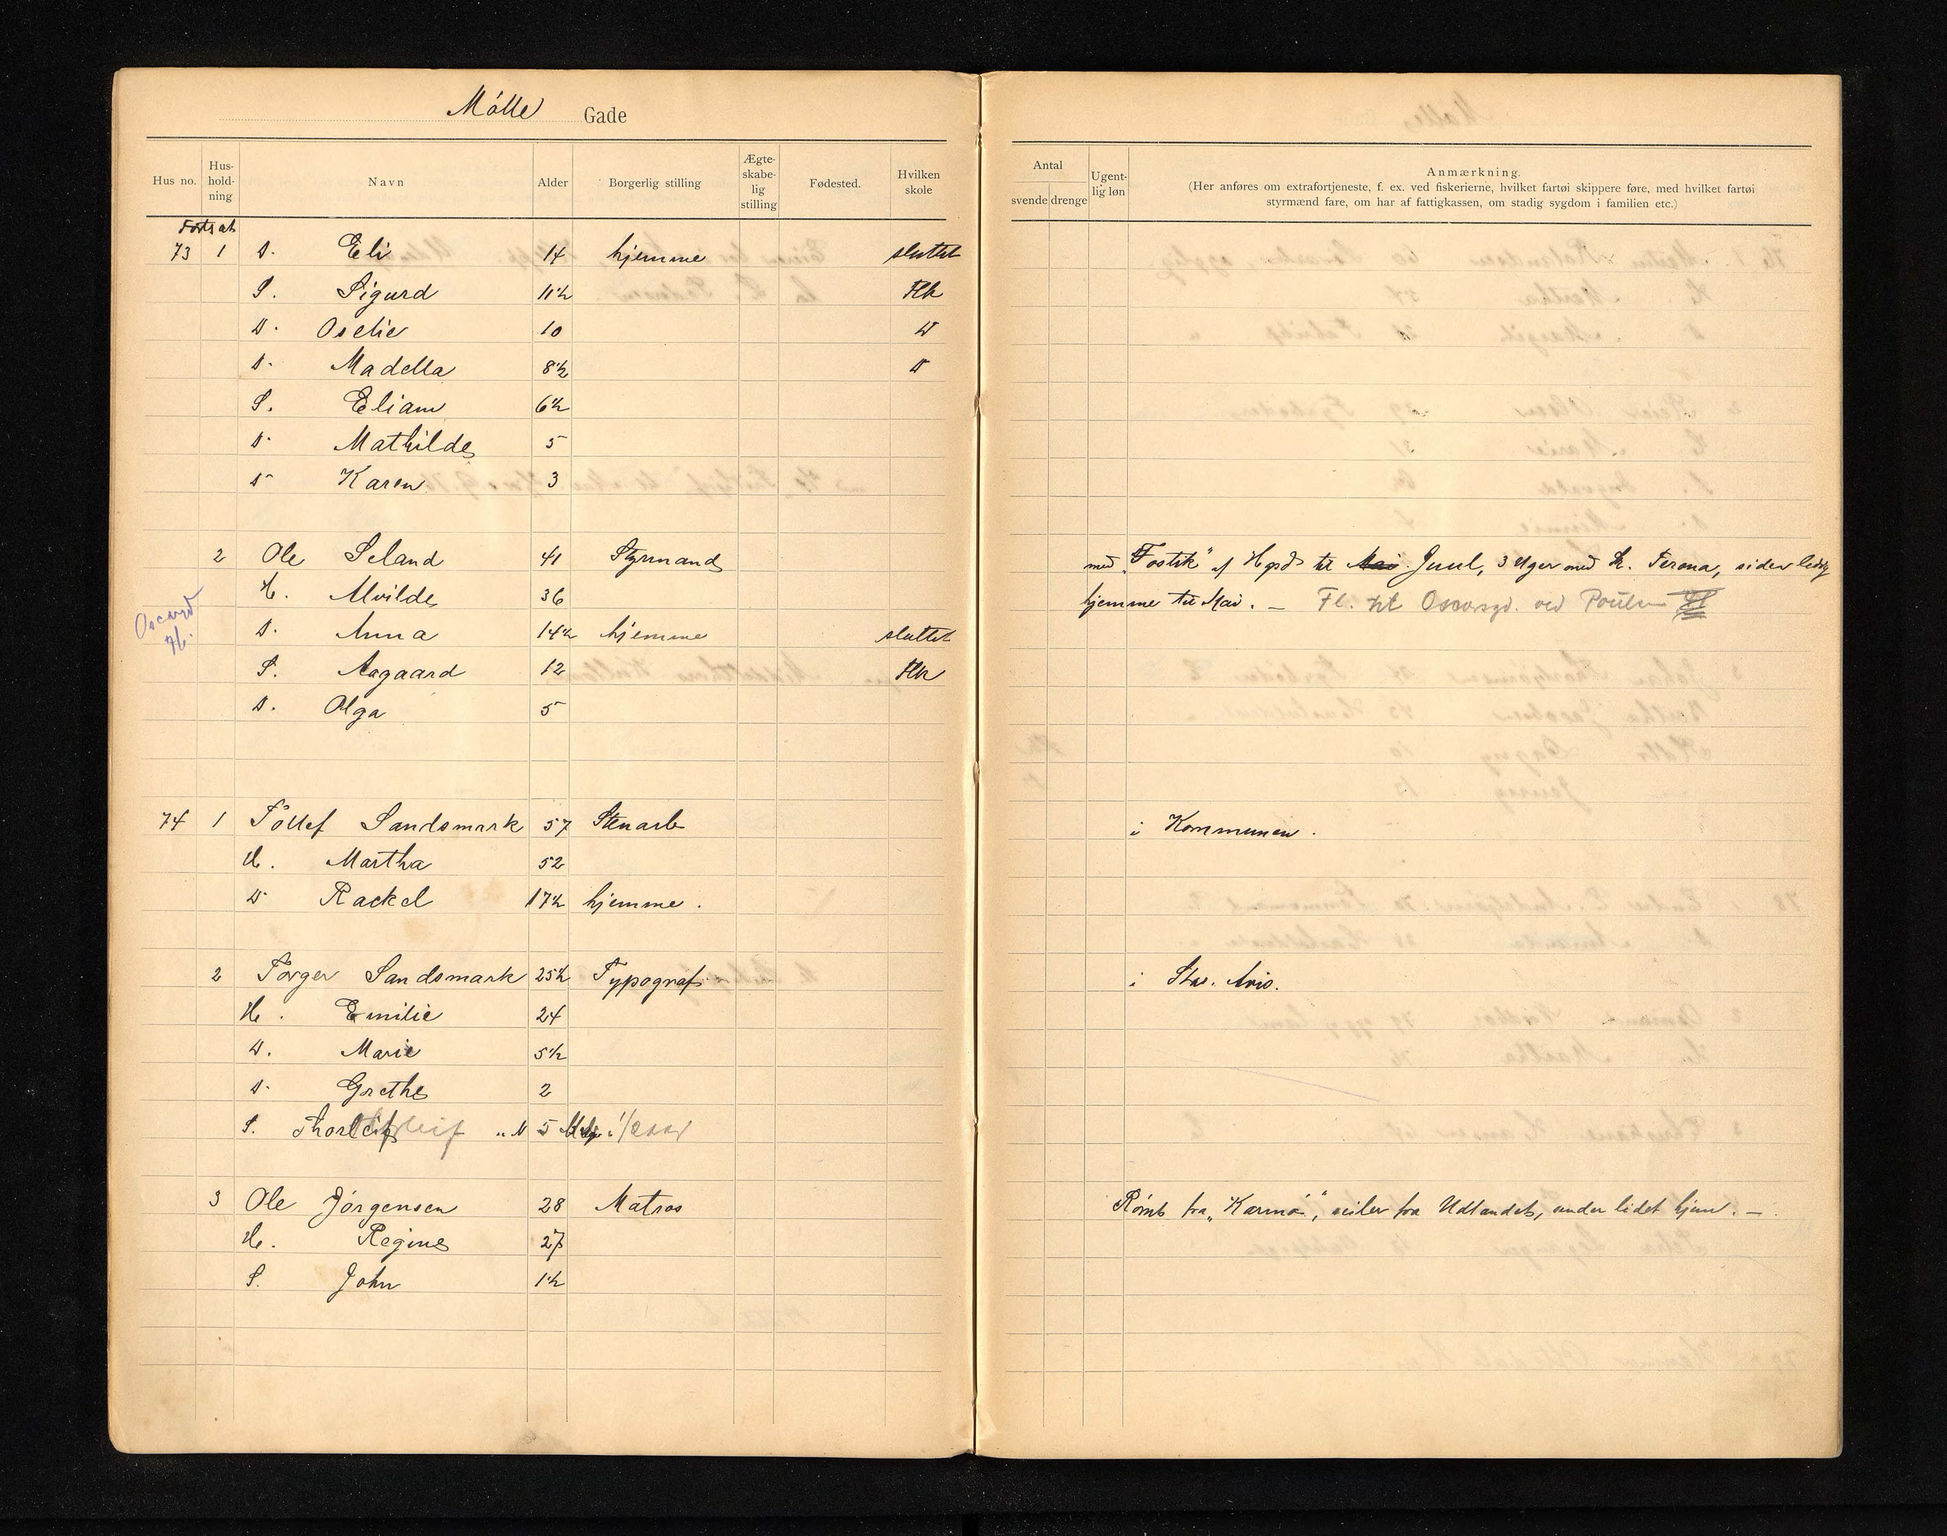 Mólle Gade
Hus no. Hus-hold-ning Navn Alder Borgerlig stilling Ægte-skabe-lig stilling Fødested. Hvilken skole
Antal svende drenge Ugent-lig løn Anmærkning.
(Her anføres om extrafortjeneste, f. ex. ved fiskerierne, hvilket fartøi skippere føre, med hvilket fartøi
styrmænd fare, om har af fattigkassen, om stadig sygdom i familien etc.)
Forts at
73 1 D. Eli 14 hjemme sluttet
S. Sigurd 11½ Flk
D. Oselie 10 D
D. Madella 8½ D
S. Eliam 6½
D. Mathilde 5
D Karen 3
2 Ole Seland 41 Styrmand med "Fostik" af Hgsd til Juul, 3 Uger med Verona, siden ledig
H. Alvilde 36 hjemme til Mai. — Fl. til Oscarsgd. ved Poulsen
Oscarsd
H.
D. Anna 14½ hjemme sluttet
S. Aagaard 12 Flk
D. Olga 5
74 1 Tollef Sandsmark 57 Stenarb i Kommunen.
H. Martha 52
D Rackel 17½ hjemme.
2 Torger Sandsmark 25½ Typograf. i Stav. Avis.
H. Emilie 24
D. Marie 5½
D. Grethe 2
S. Thorleif 5
3 Ole Jórgensen 28 Matros Rómt fra "Karmó", seiler fra Udlandet, sender lidet hjem. —
H. Regine 27
S. John 1½